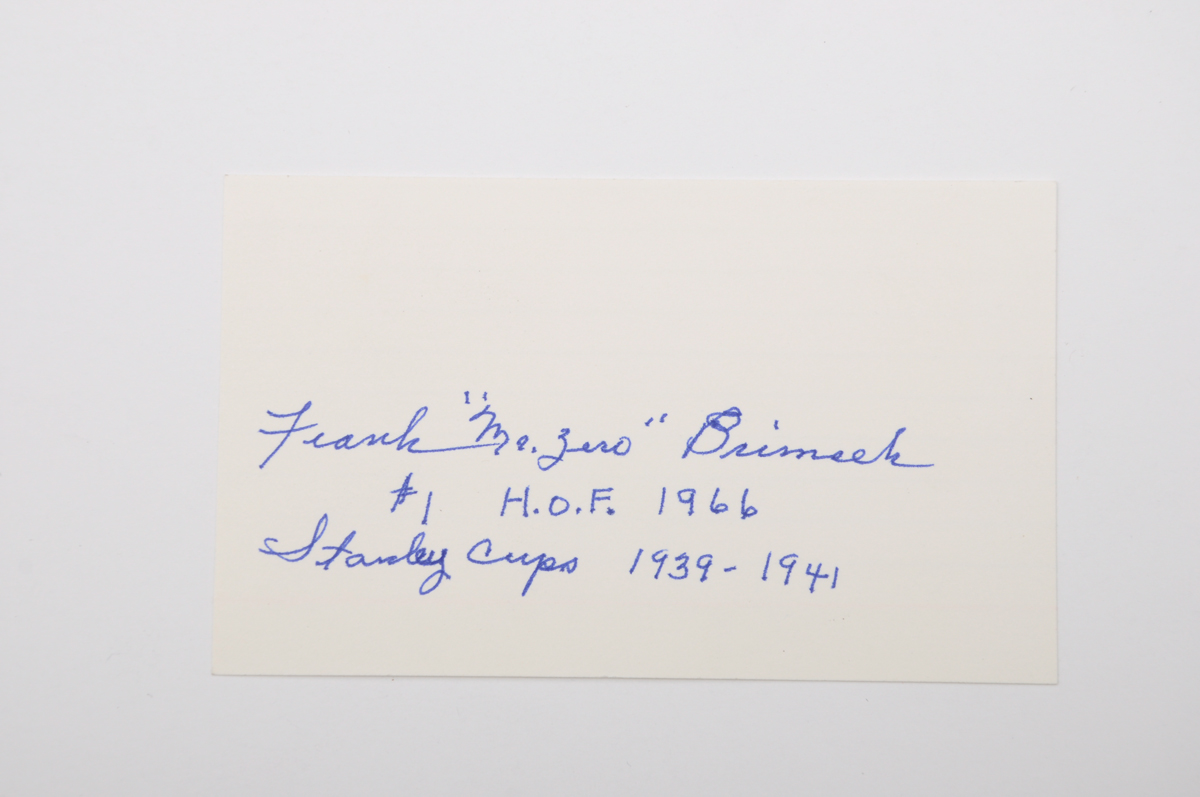 Frank "Mr. Zero" Brimsek
#1 H.O.F. 1966
Stanley Cups 1939-1941